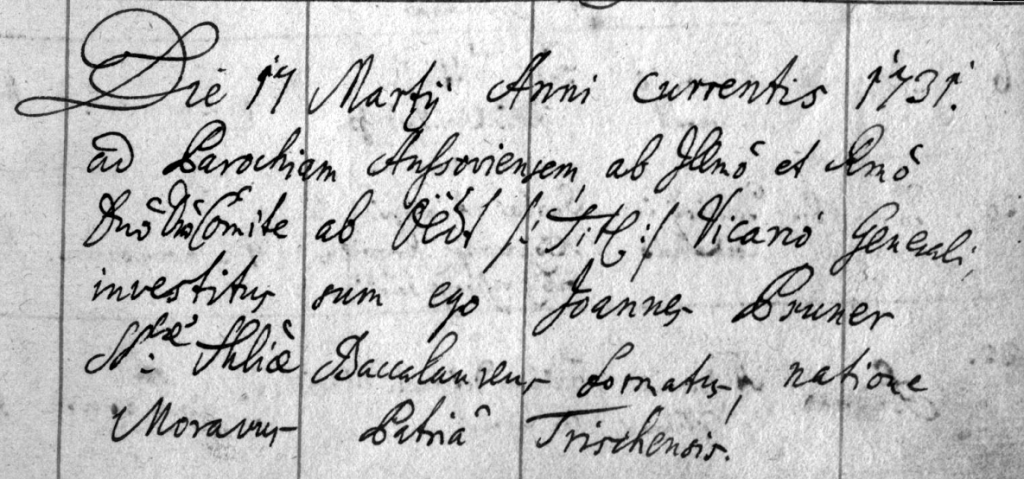 Die 17 Martij Anni currentis 1731.
ad Parochiam Aussoviensem, ab Illmô et Rmô
Dnô Dnô Comite ab Oëdt /: Titl: / Vicariô Generali,
investitus sum ego Joannes Bruner
SS.ae Thliae Baccalaureus formatus, natione
Moravus Patriâ Trischensis.